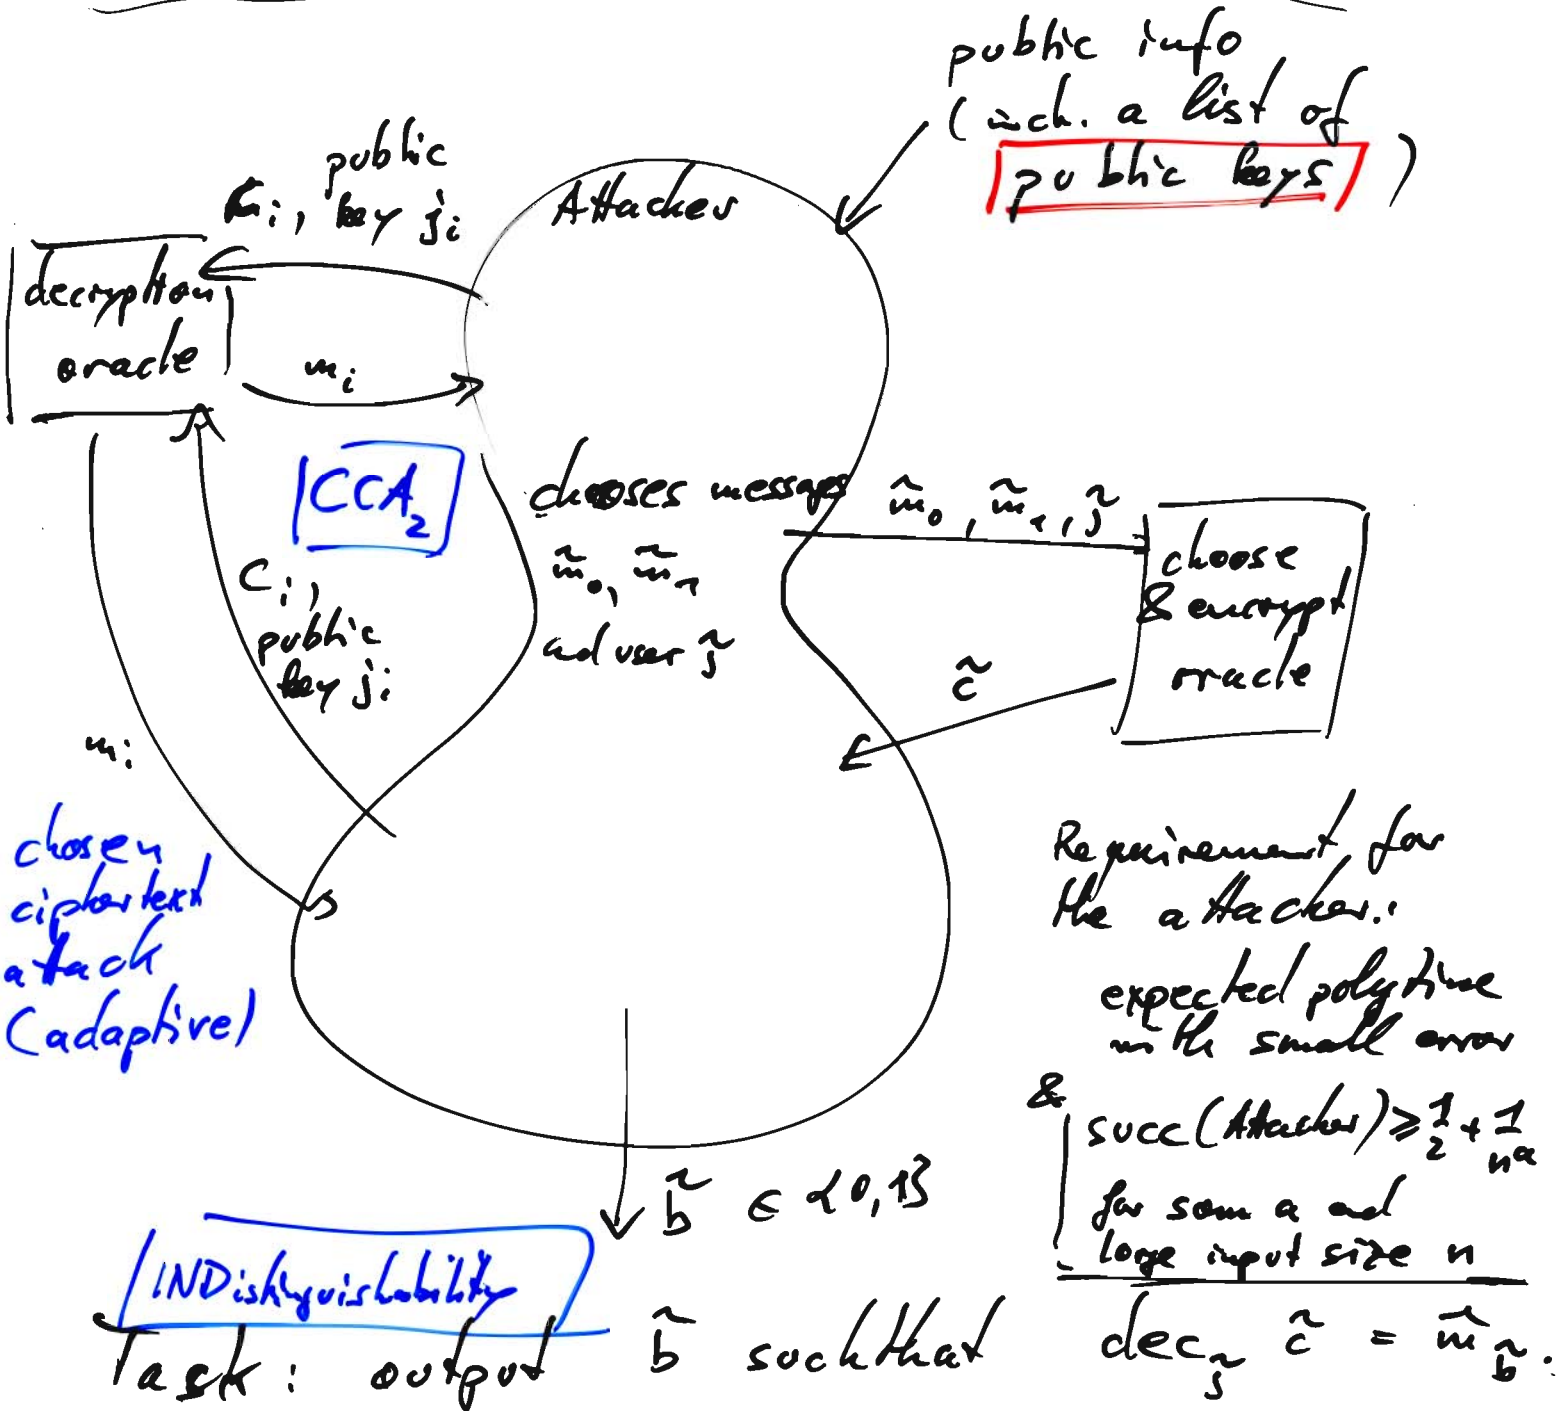 public info
(incl. a list of
public keys)
public
c_i, key j_i
Attacker
decryption
oracle
m_i
CCA_2
chooses messages
m̃_0, m̃_1
and user j̃
m̃_0, m̃_1, j̃
choose
& encrypt
oracle
c̃
c_i,
public
key j_i
m_i
chosen
ciphertext
attack
(adaptive)
Requirement for
the attacker:
expected polytime
with small error
&
succ(Attacker) ≥ 1/2 + 1/n^a
for som a and
large input size n
b̃ ∈ {0,1}
INDistinguishability
Task: output b̃ such that dec_j̃ c̃ = m̃_b̃.